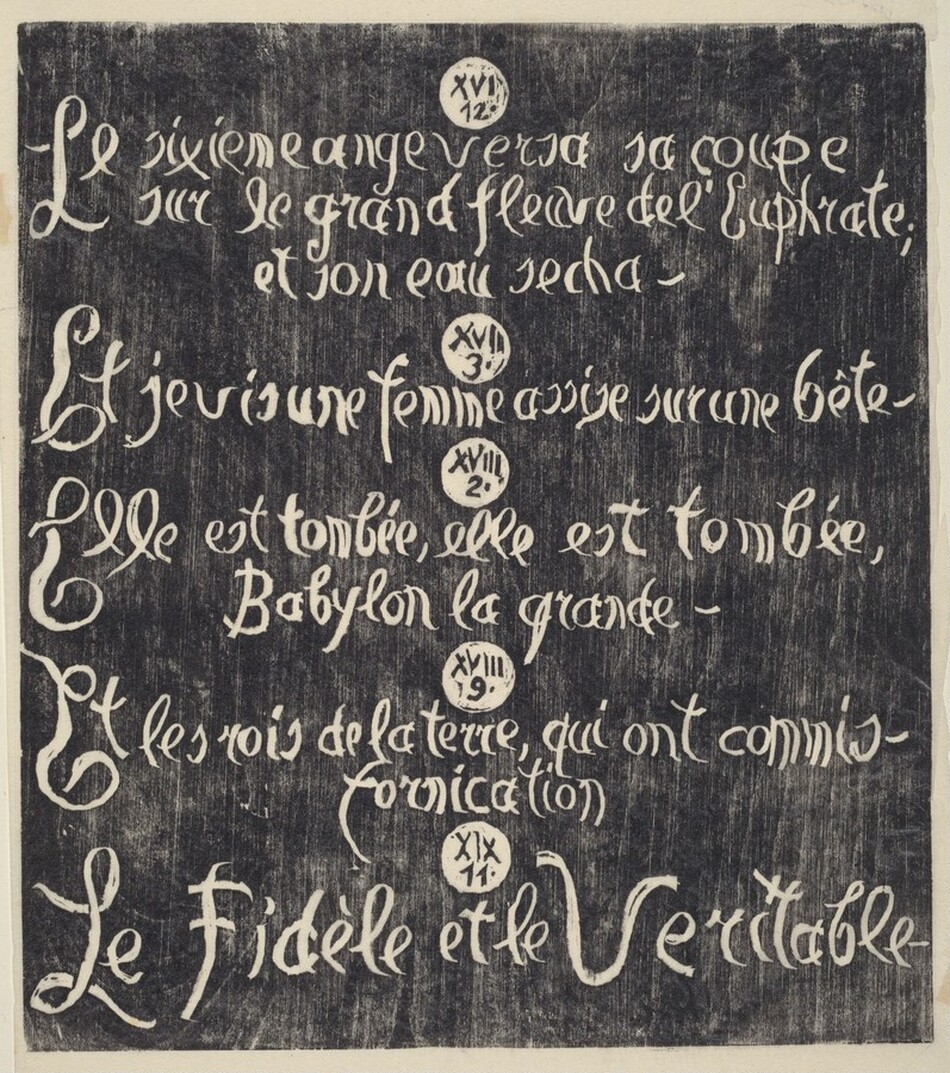 XVI
12.
Le sixieme ange versa sa coupe
sur le grand fleuve de l'Euphrate;
et son eau secha -
XVII
3.
Et je vis une femme assise sur une bête -
XVIII
2.
Elle est tombée, elle est tombée,
Babylon la grande -
XVIII
9.
Et les rois de la terre, qui ont commis -
fornication
XIX
11.
Le Fidèle et le Veritable -